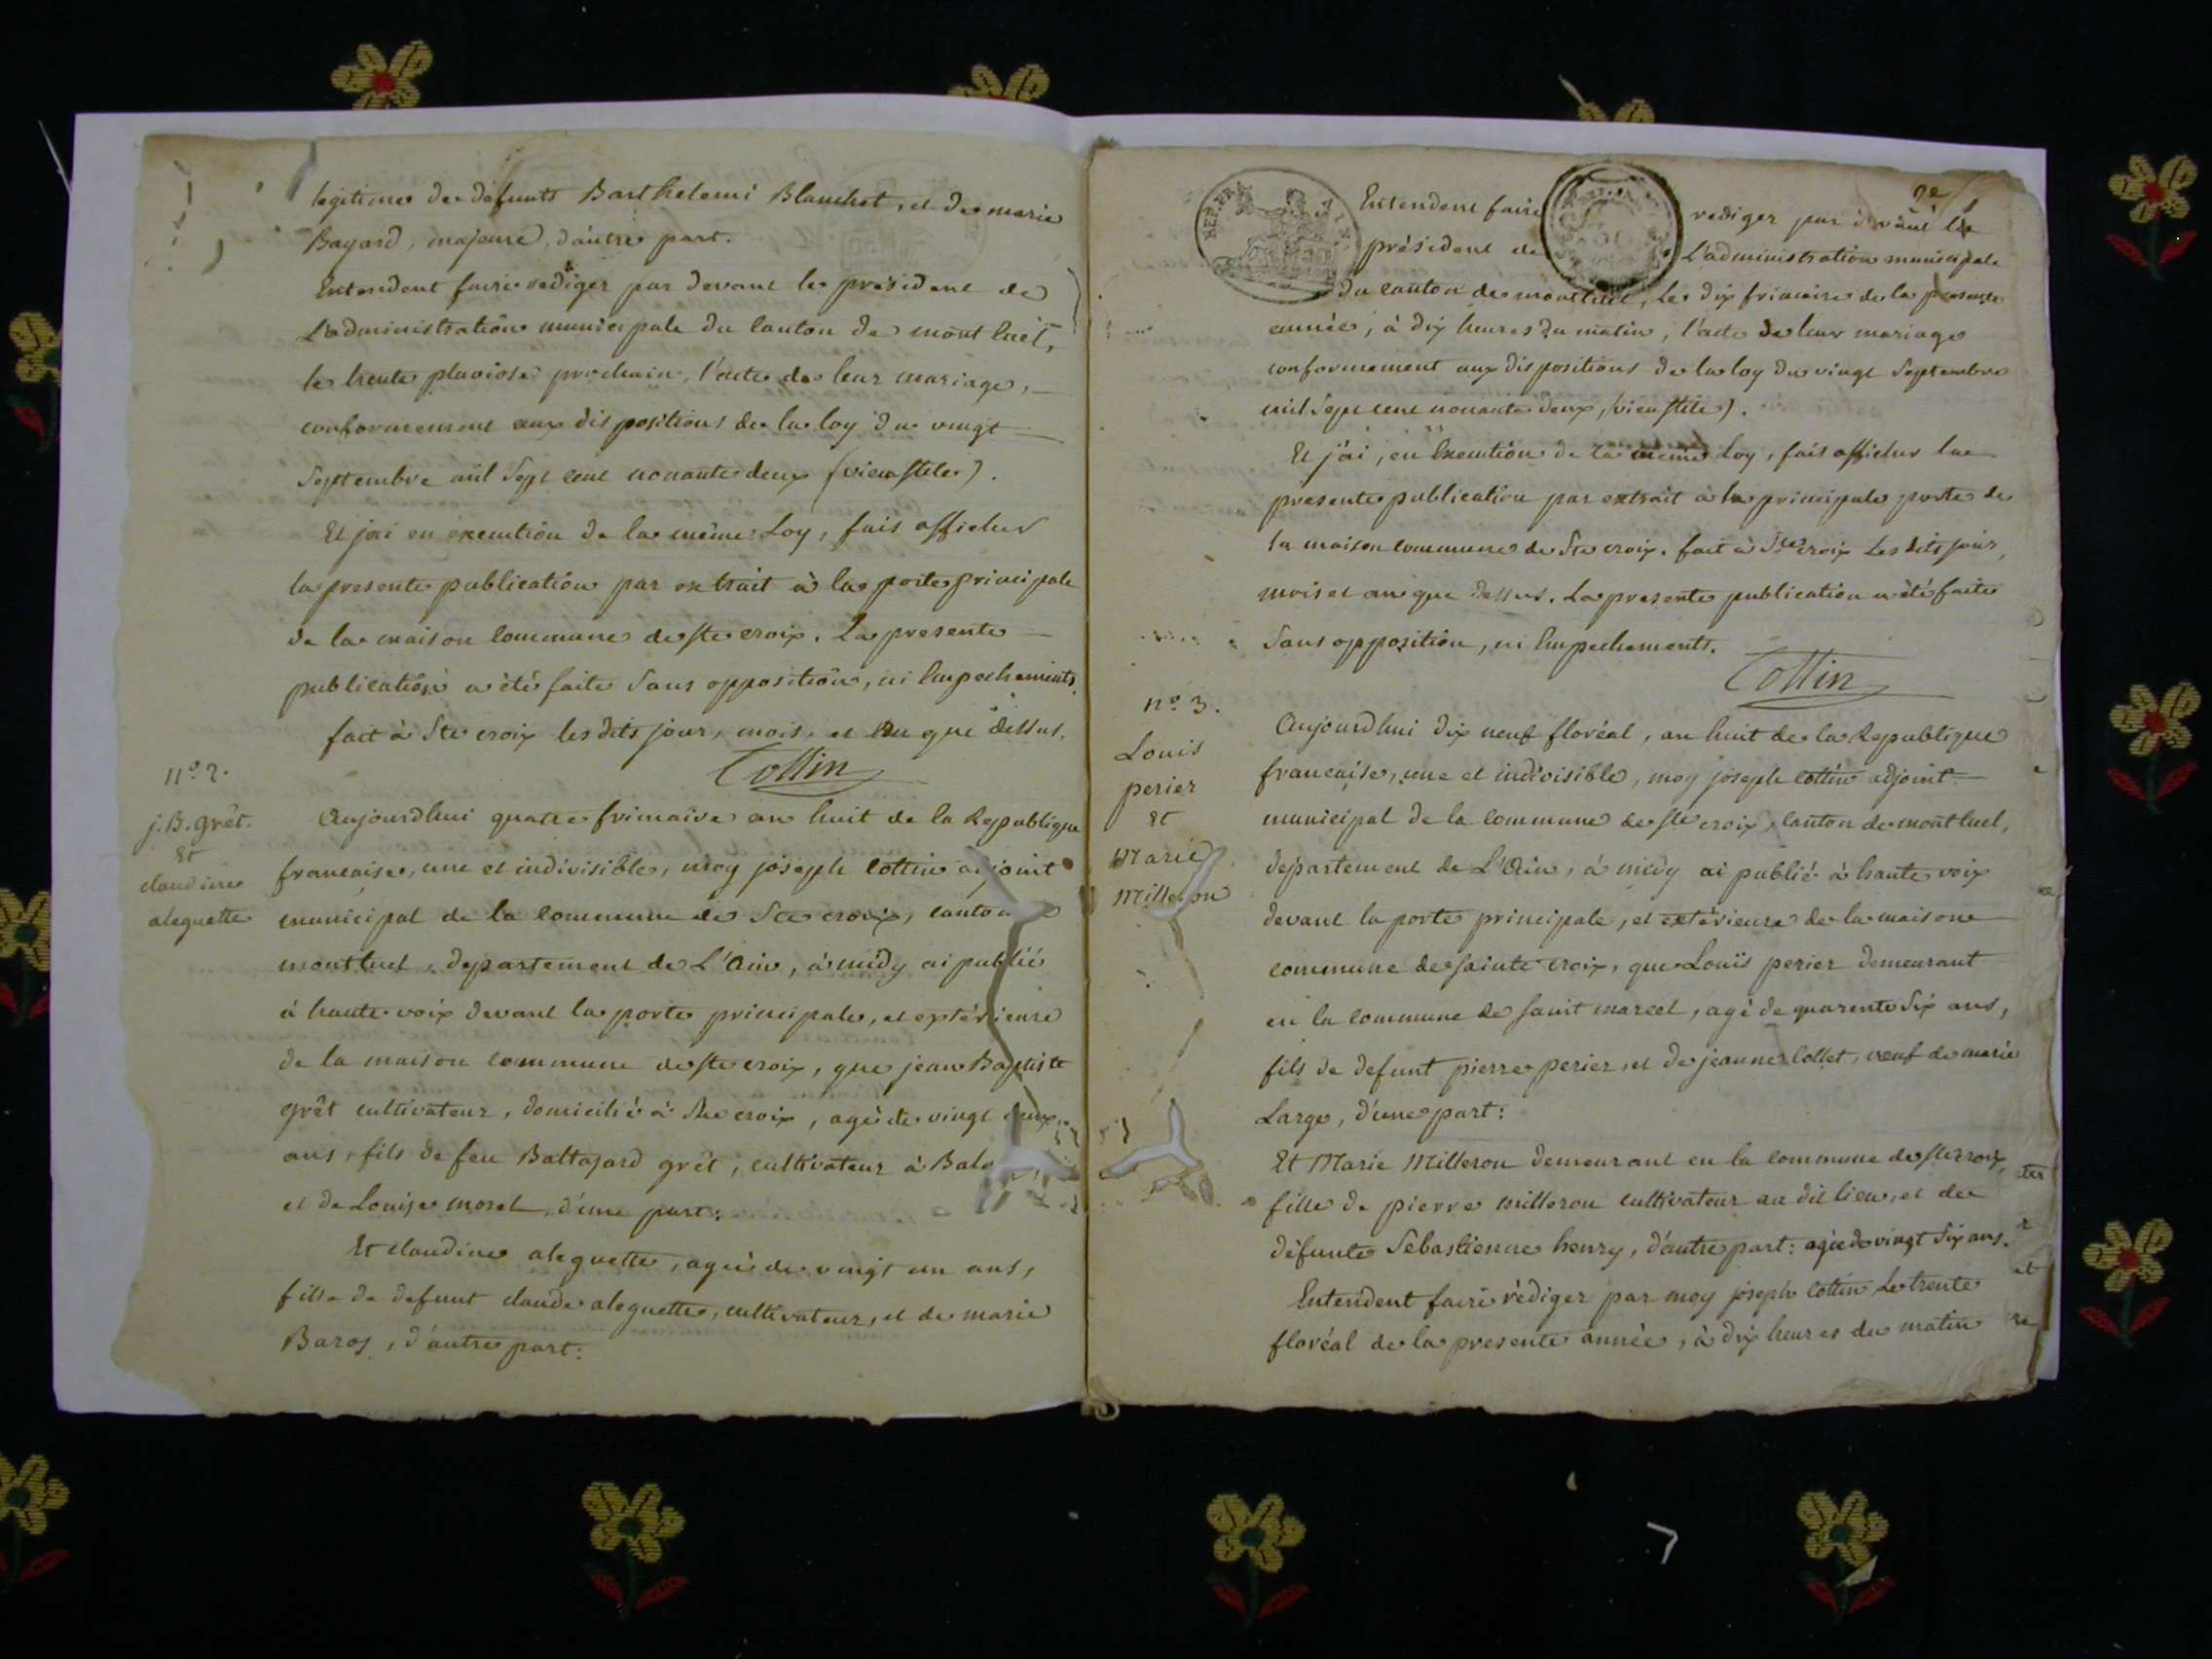 legitime de défunts Barthelemi Blanchet, et de marie
Bayard, majeure, d'autre part.
Entendent faire rediger par devant le président de
L'administration municipale du canton de montluel,
le trente pluviose prochain, l'acte de leur mariage,
conformement aux dispositions de la loy du vingt
Septembre mil Sept cent nonante deux (vieu stile).
Et j'ai en execution de la même Loy, fais afficher
la presente publication par extrait à la porte principale
de la maison commune de ste croix. La presente
publication a été faite Sans opposition, ni Empechements.
fait à Ste croix les dits jour, mois, et an que dessus.
Cottin
n.º 2.
j. B. grêt.
Et
claudine
aleguette
Aujourdhui quatre frimaire an huit de la Republique
francaise, une et indivisible, moy joseph cottin adjoint
municipal de la commune de Ste croix, canton
montluel, departement de L'Ain, à midy ai publié
à haute voix devant la porte principale, et extérieure
de la maison commune de ste croix, que jean Baptiste
grêt cultivateur, domicilié à Ste croix, agé de vingt deux
ans, fils de feu Baltazard grêt, cultivateur à
et de Louise morel, d'une part:
Et claudine aleguette, agée de vingt un ans,
fille de defunt claude aleguette, cultivateur, et de marie
Baros, d'autre part:
2e
REP. FRA
Entendent faire rediger par devant le
président de L'administration municipale
du canton de montluel, le dix frimaire de la presente
année, à dix heures du matin, l'acte de leur mariage
conformement aux dispositions de la loy du vingt Septembre
mil Sept cent nonante deux, (vieu stile).
Et j'ai, en Execution de la même Loy, fais afficher la
presente publication par extrait à la principale porte de
la maison commune de Ste croix. fait à Ste croix Les dits jour,
mois et an que dessus. La presente publication a été faite
Sans opposition, ni Empechements.
Cottin
nº 3.
Louis
perier
Et
Marie
Milleron
Aujourdhui dix neuf floréal, an huit de la Republique
francaise, une et indivisible, moy joseph cottin adjoint
municipal de la commune de ste croix, canton de montluel,
departement de L'Ain, à midy ai publié à haute voix
devant la porte principale, et extérieure de la maison
commune de sainte croix, que Louïs perier demeurant
en la commune de saint marcel, agé de quarente Six ans,
fils de defunt pierre perier, et de jeanne collet, veuf de marie
Large, d'une part:
Et Marie Milleron demeurant en la commune de ste croix,
fille de pierre milleron cultivateur au dit lieu, et de
défunte Sebastienne henry, d'autre part: agée de vingt Six ans.
Entendent faire rédiger par moy joseph cottin Le trente
floréal de la presente année, à dix heures du matin